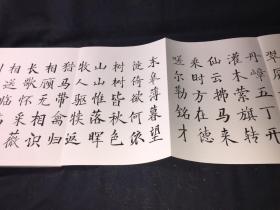 翠屏
丹嶂五丁开
灌木萦旗转
仙云拂马来
乘时方在德
嗟尔勒铭才
东皋薄暮望
徙倚欲何依
树树皆秋色
山山惟落晖
牧人驱犊返
猎马带禽归
相顾无相识
长歌怀采薇
相送临